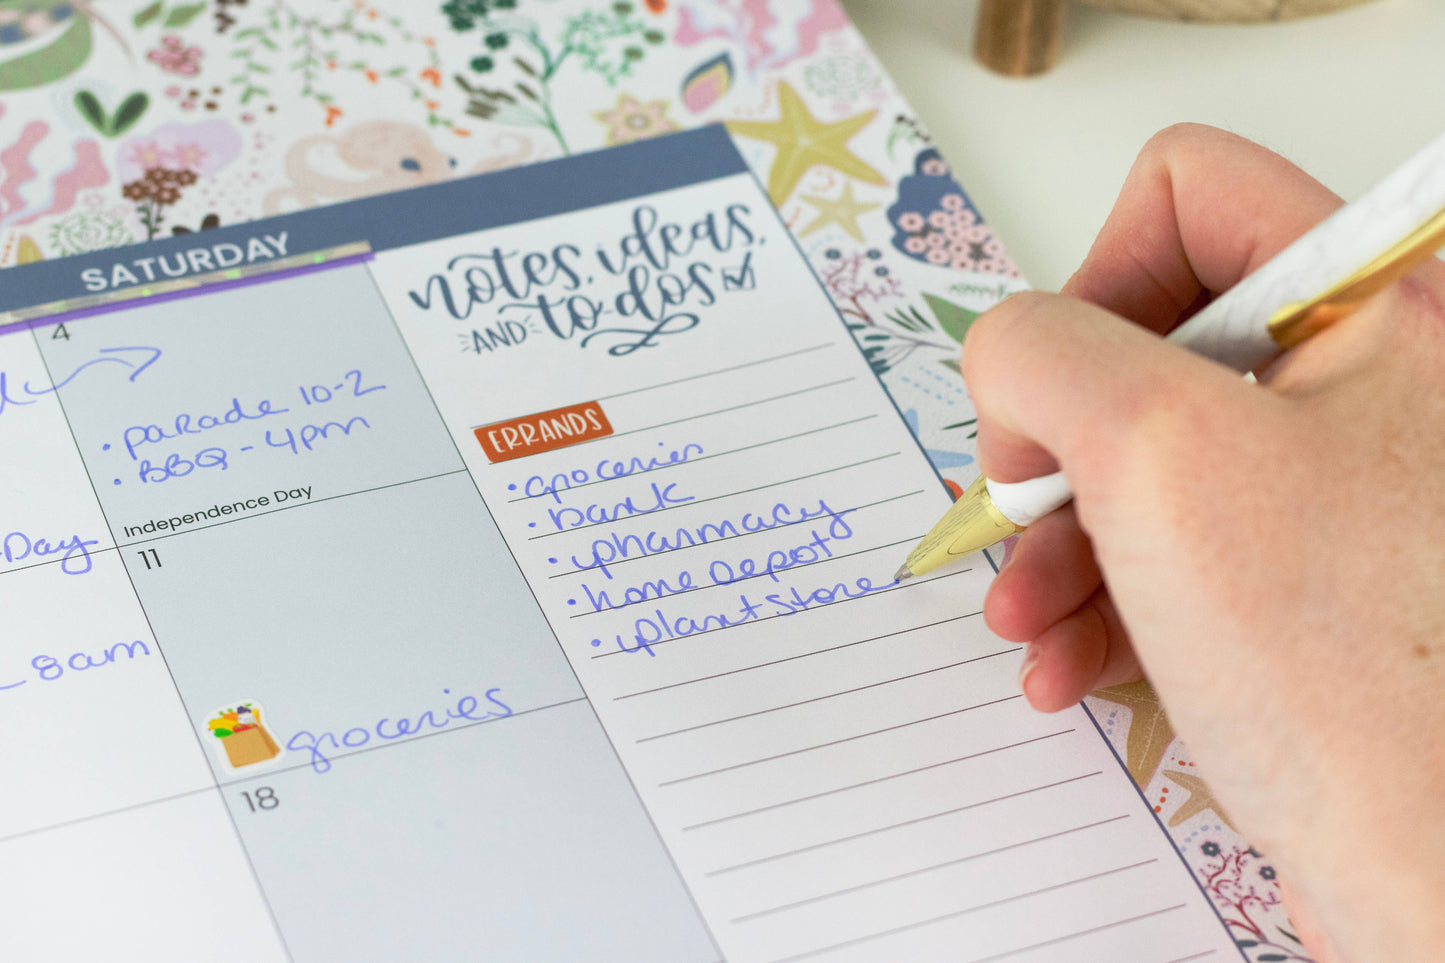 SATURDAY
4
• Parade 10-2
• BBQ - 4pm
Independence Day
Day
11
8am
groceries
18
notes, ideas,
AND to-dos
ERRANDS
• groceries
• bank
• pharmacy
• home Depot
• plant store